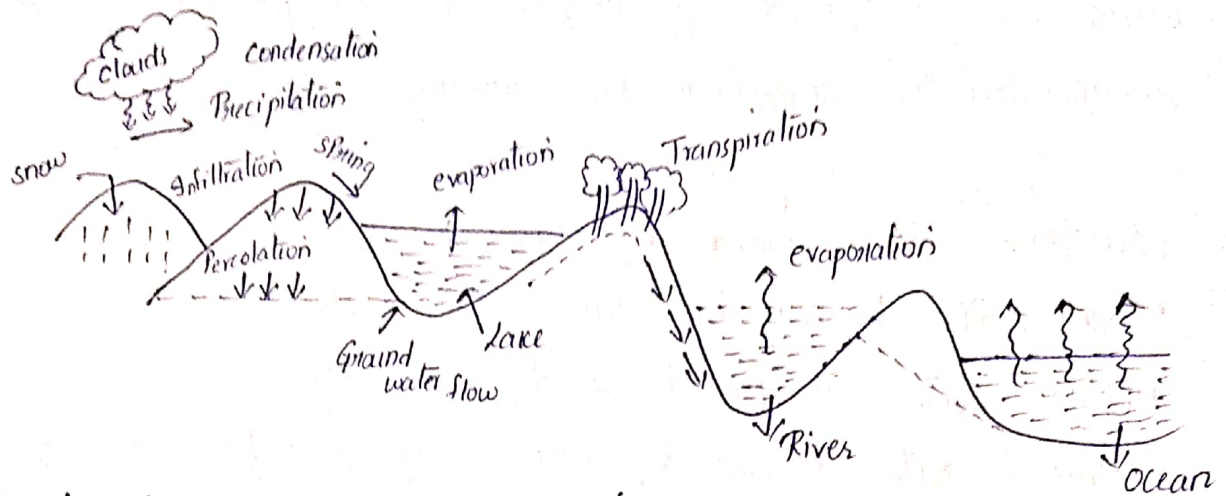 clouds
condensation
Precipitation
snow
Infiltration
spring
evaporation
Transpiration
Percolation
evaporation
Ground
water flow
Lake
River
Ocean